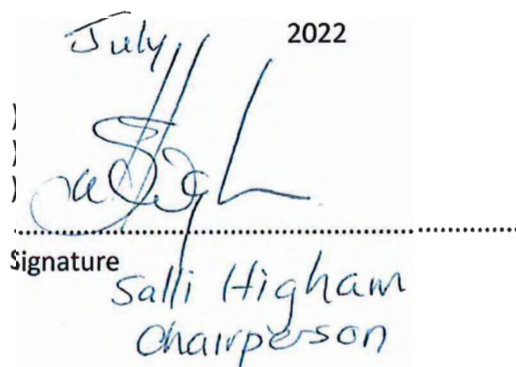 July 2022
)
)
)
Signature
Salli Higham
Chairperson